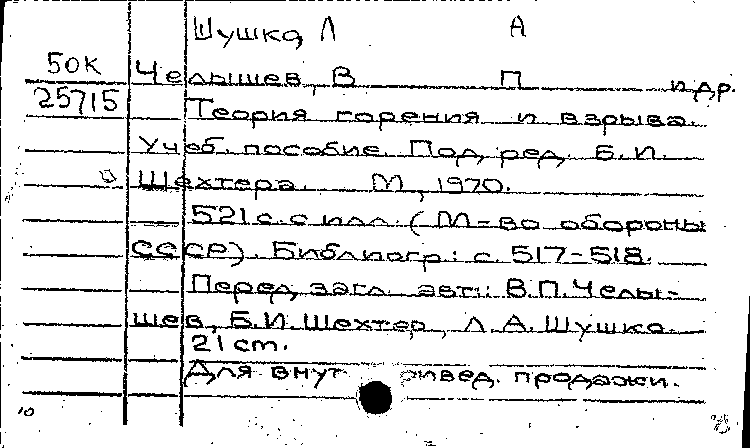 Шушко, Л А
50К Челышев, В П и др.
25715 Теория горения и взрыва.
Учеб. пособие. Под ред. Б.И.
Шехтера. М., 1970.
521 с. с илл. (М-во обороны
СССР). Библиогр.: с. 517-518.
Перед загл. авт.: В.П. Челы-
шев, Б.И. Шехтер, Л.А. Шушко.
21 cm.
Для внут ривед. продажи.
10